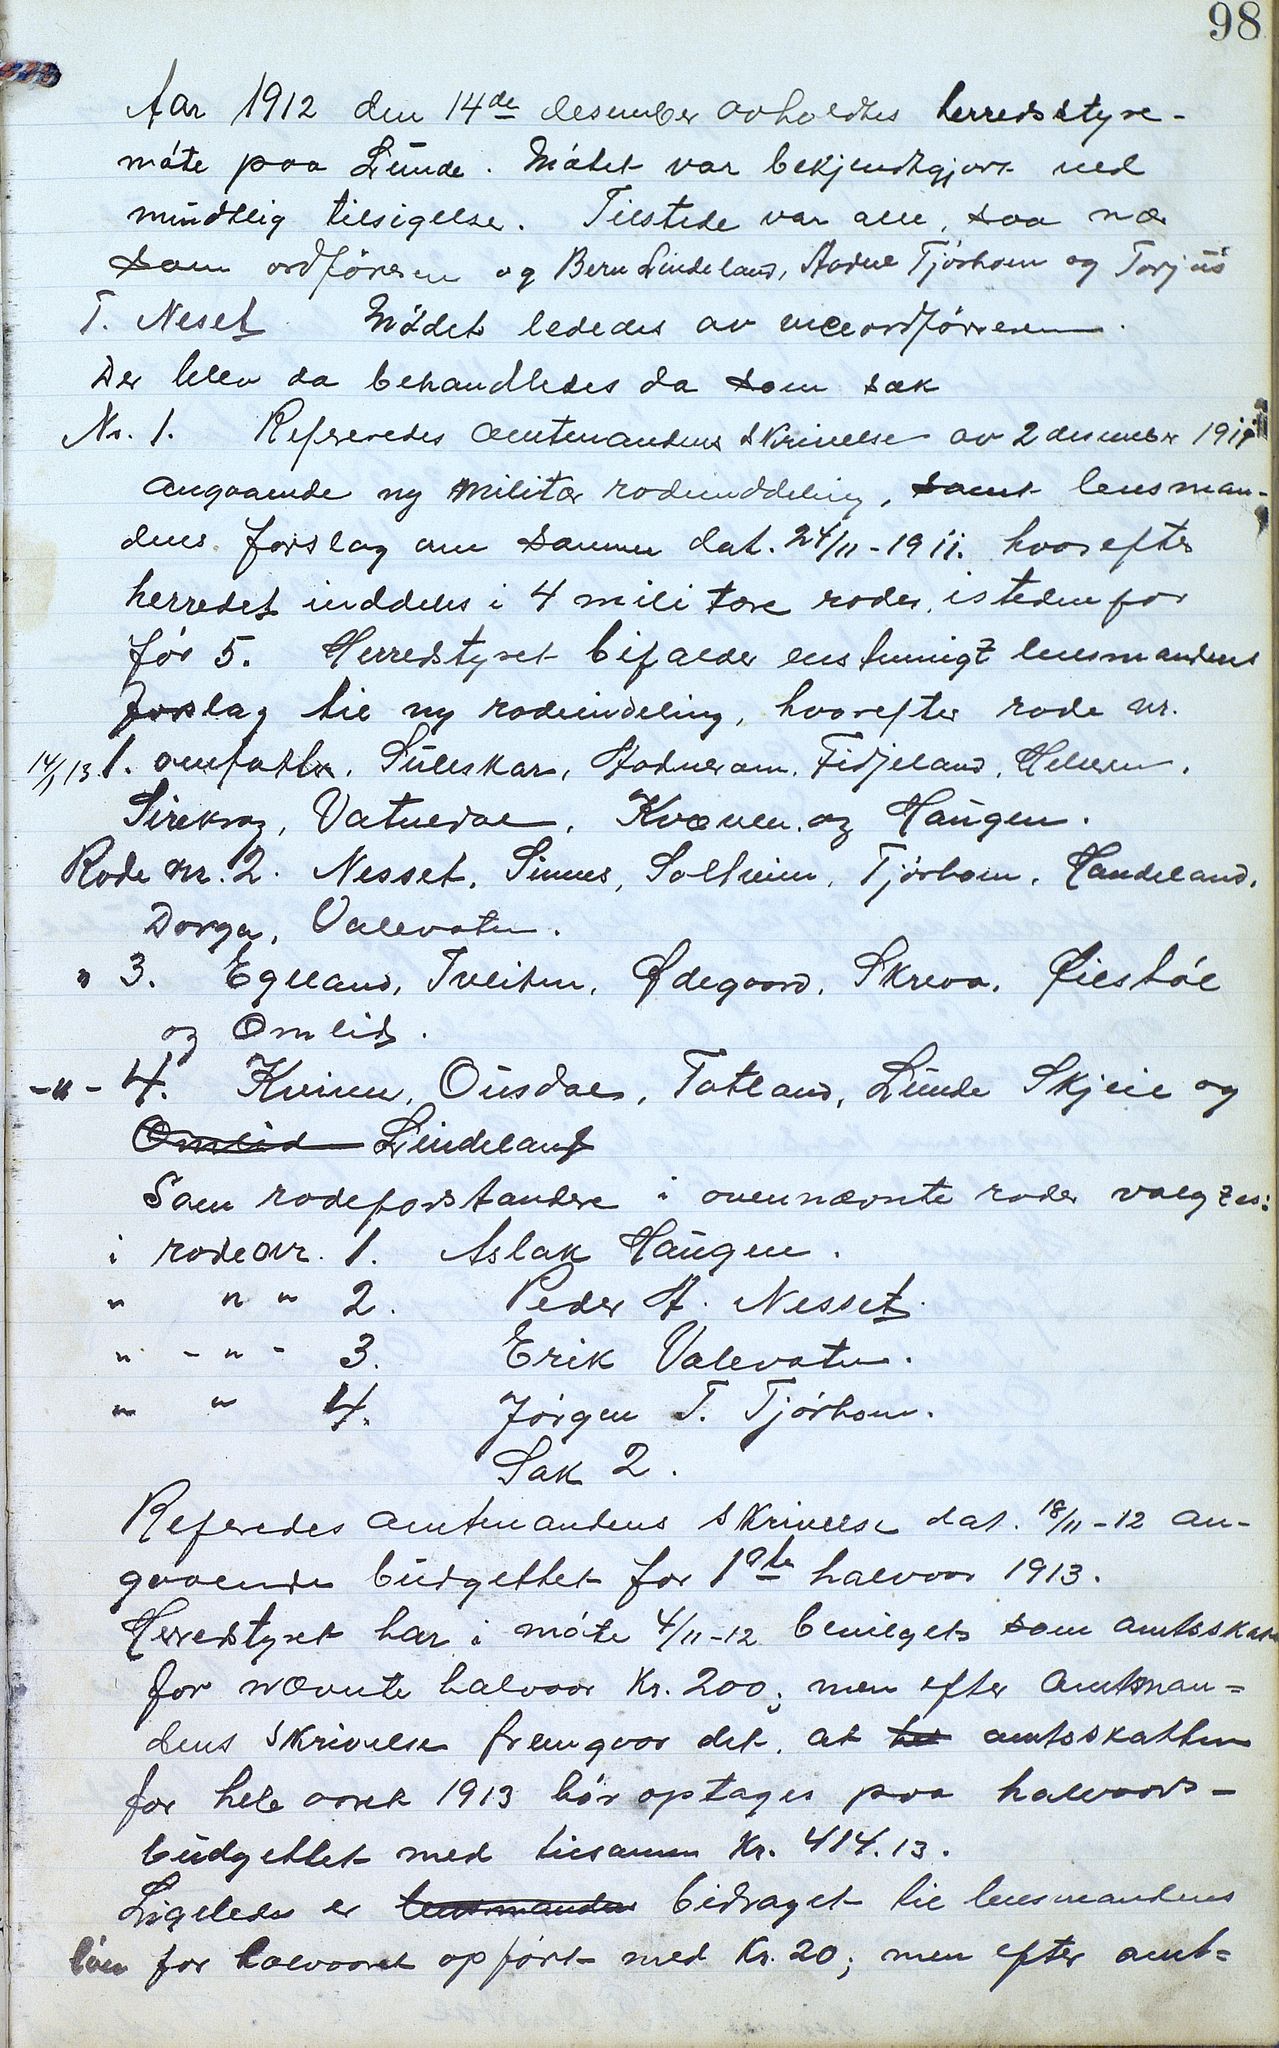 98
Aar 1912 den 14de desember avholdtes herredsstyre-
møte paa Lunde. Møtet var bekjendtgjort ved
mundtlig tilsigelse. Tilstede var alle, saa nær
som ordføreren og Bern Lindeland, Aadne Tjørhom og Torjus
T. Neset Mødet lededes av viceordføreren.
Der blev da behandledes da som sak
Nr. 1. Refereredes amtmandens skrivelse av 2 desember 1911
angaaende ny militær rodeinddeling, samt lensman-
dens forslag om samme dat. 24/11-1911. hvorefter
herredet inddeles i 4 militære roder, istedenfor
før 5. Herredstyret bifalder enstemmigt lensmandens
forslag til ny rodeindeling, hvorefter rode nr.
14/1 13. 1. omfatter, Suleskar, Aadneram, Fidjeland, Helleren,
Sirekrog, Vatnedal, Kvæven og Haugen.
Rode nr. 2. Nesset, Sinnes, Solheim, Tjørhom, Handeland,
Dorga, Valevatn.
" 3. Egeland, Tveiten, Ødegaard, Skreaa, Øilestøl
og Omlid.
-"- 4. Kvinen, Ousdal, Tatland, Lunde Skjeie og
Omlid Lindeland
Som rodeforstandere i ovennævnte roder valgtes:
i rode nr. 1. Aslak Haugen.
" " " 2. Peder A. Nesset.
" - " - 3. Erik Valevatn.
" " 4. Jørgen T. Tjørhom.
Sak 2.
Referedes amtmandens skrivelse dat. 18/11-12 an-
gaaende budgettet for 1ste halvaar 1913.
Herredstyret har i møte 4/11-12 bevilget som amtsskat
for nævnte halvaar Kr. 200; men efter amtman=
dens skrivelse fremgaar det, at amtsskatten
for hele aaret 1913 bør optages paa halvaars-
budgettet med tilsamen Kr. 414.13.
Ligeledes er lensmandens bidraget til lensmandens
løn for halvaaret opført med Kr. 20; men efter amt=